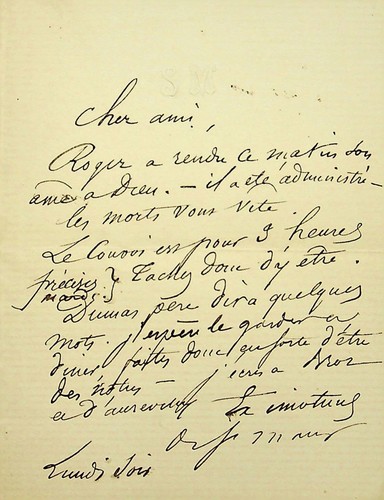 Cher ami,
Roger a rendu ce matin son
âme a Dieu. – il a été administré –
les morts vous vite
Le Convoi est pour 9 heures
précises Tachez donc d'y être.
mardi
Dumas père dira quelques
mots. j'espère le garder a
diner faites donc en sorte d'être
des nôtres – j'écris a
et d'aurevilly
Lundi soir